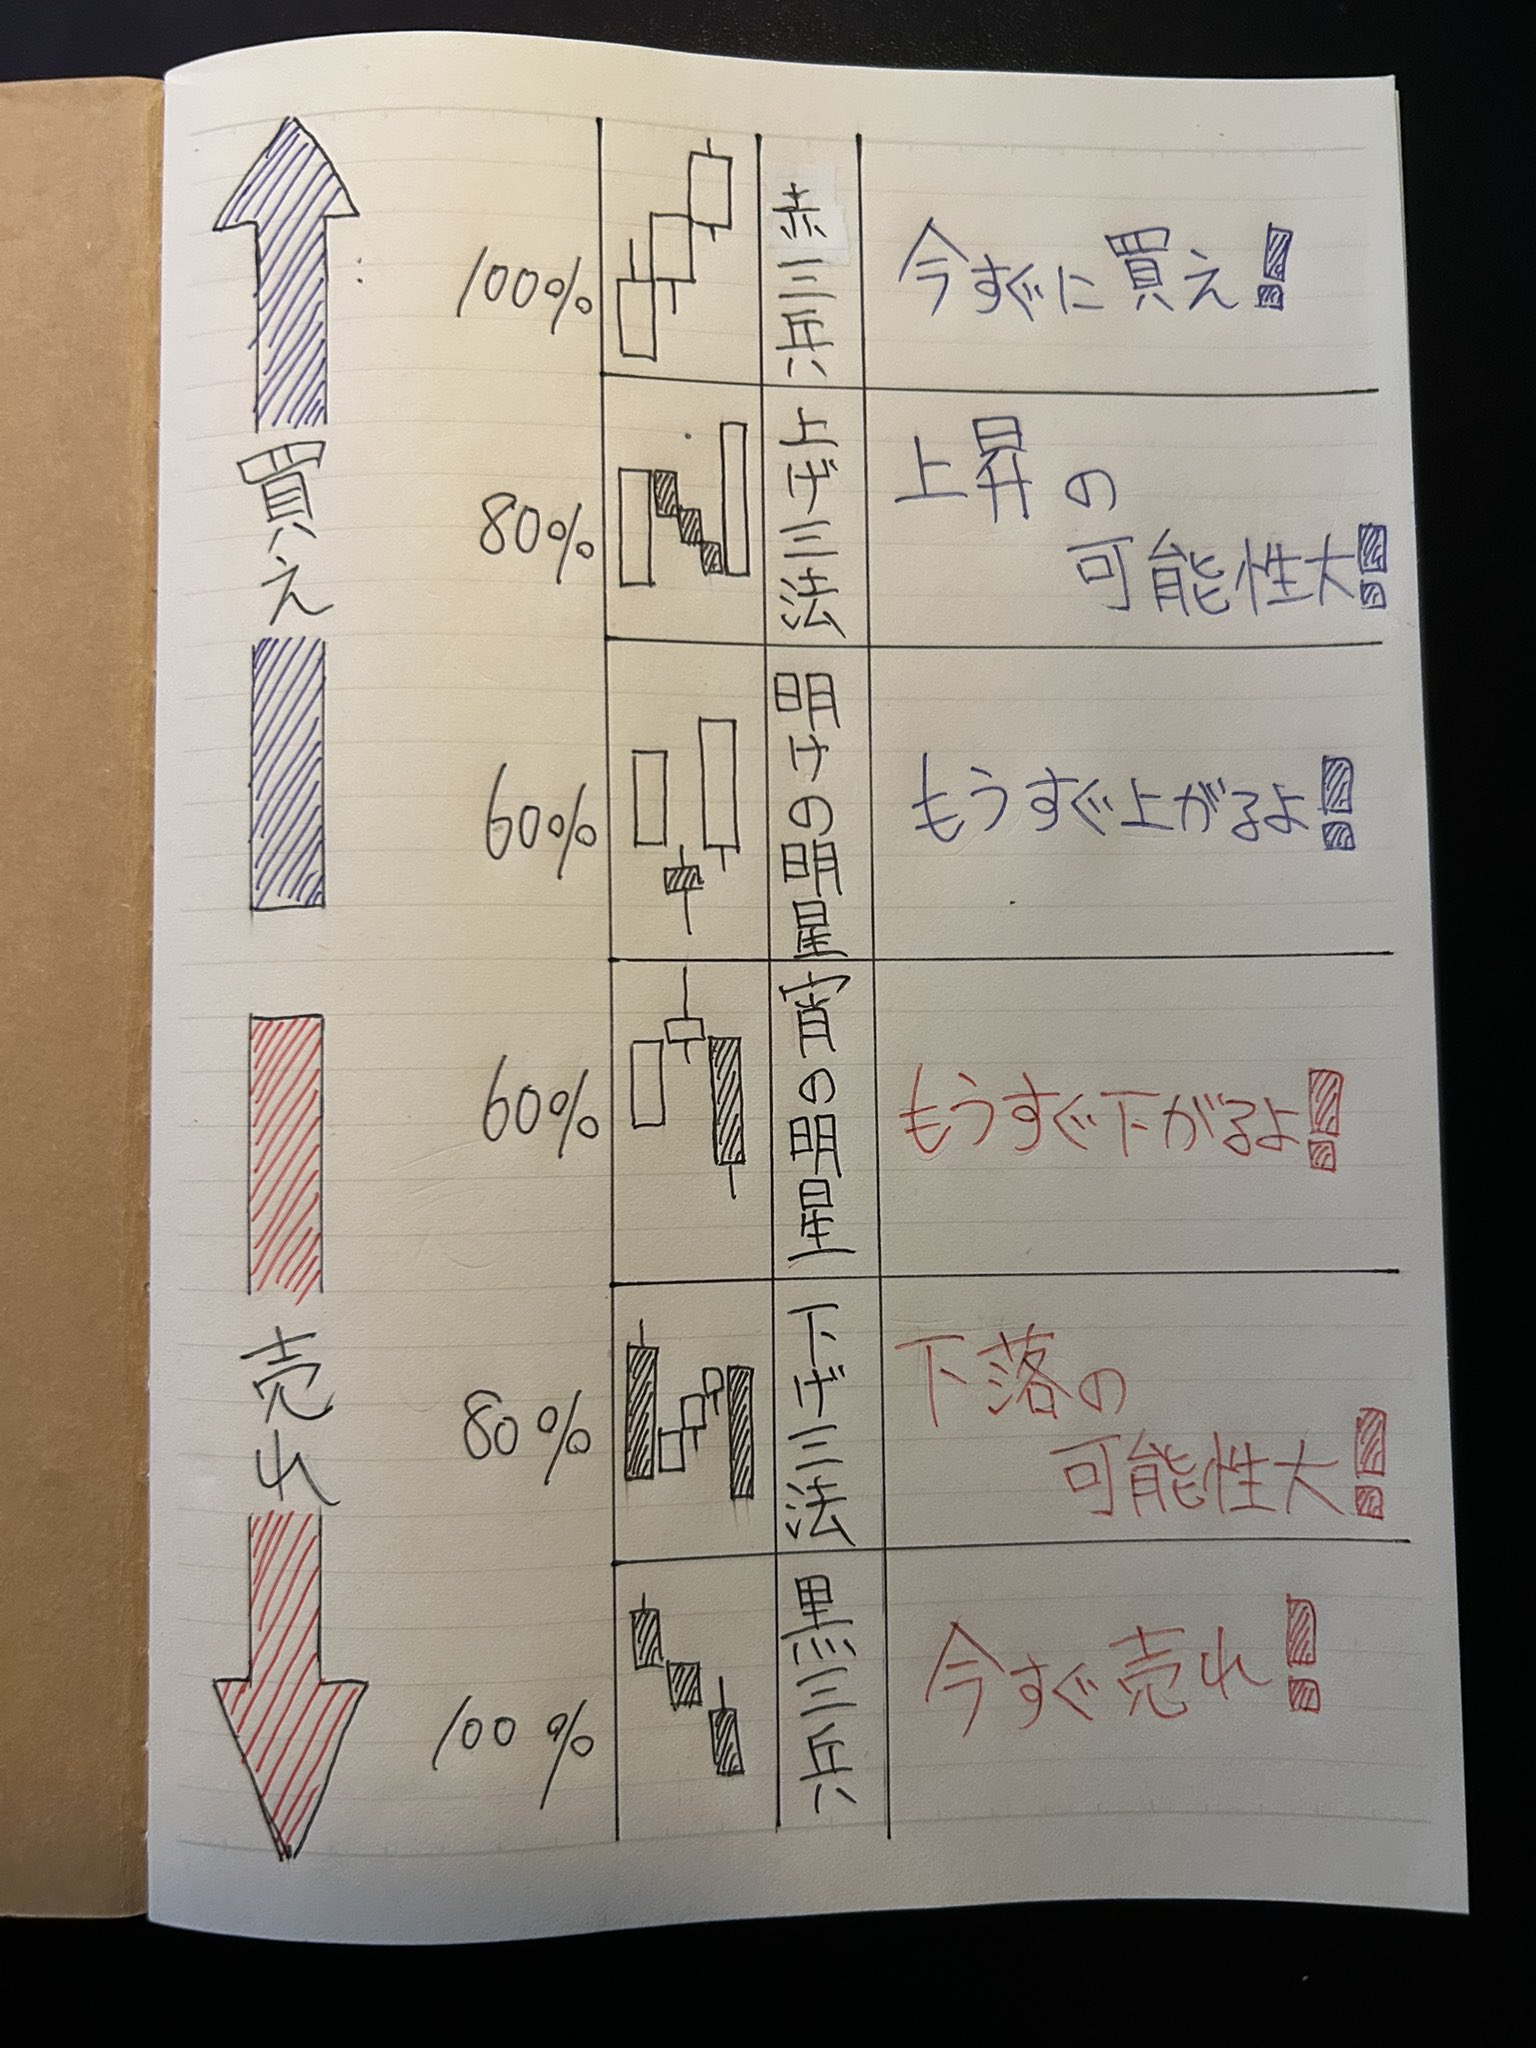 買え
売れ
100%
赤三兵
今すぐに買え!
80%
上げ三法
上昇の
可能性大!
60%
明けの明星
もうすぐ上がるよ!
60%
宵の明星
もうすぐ下がるよ!
80%
下げ三法
下落の
可能性大!
100%
黒三兵
今すぐ売れ!